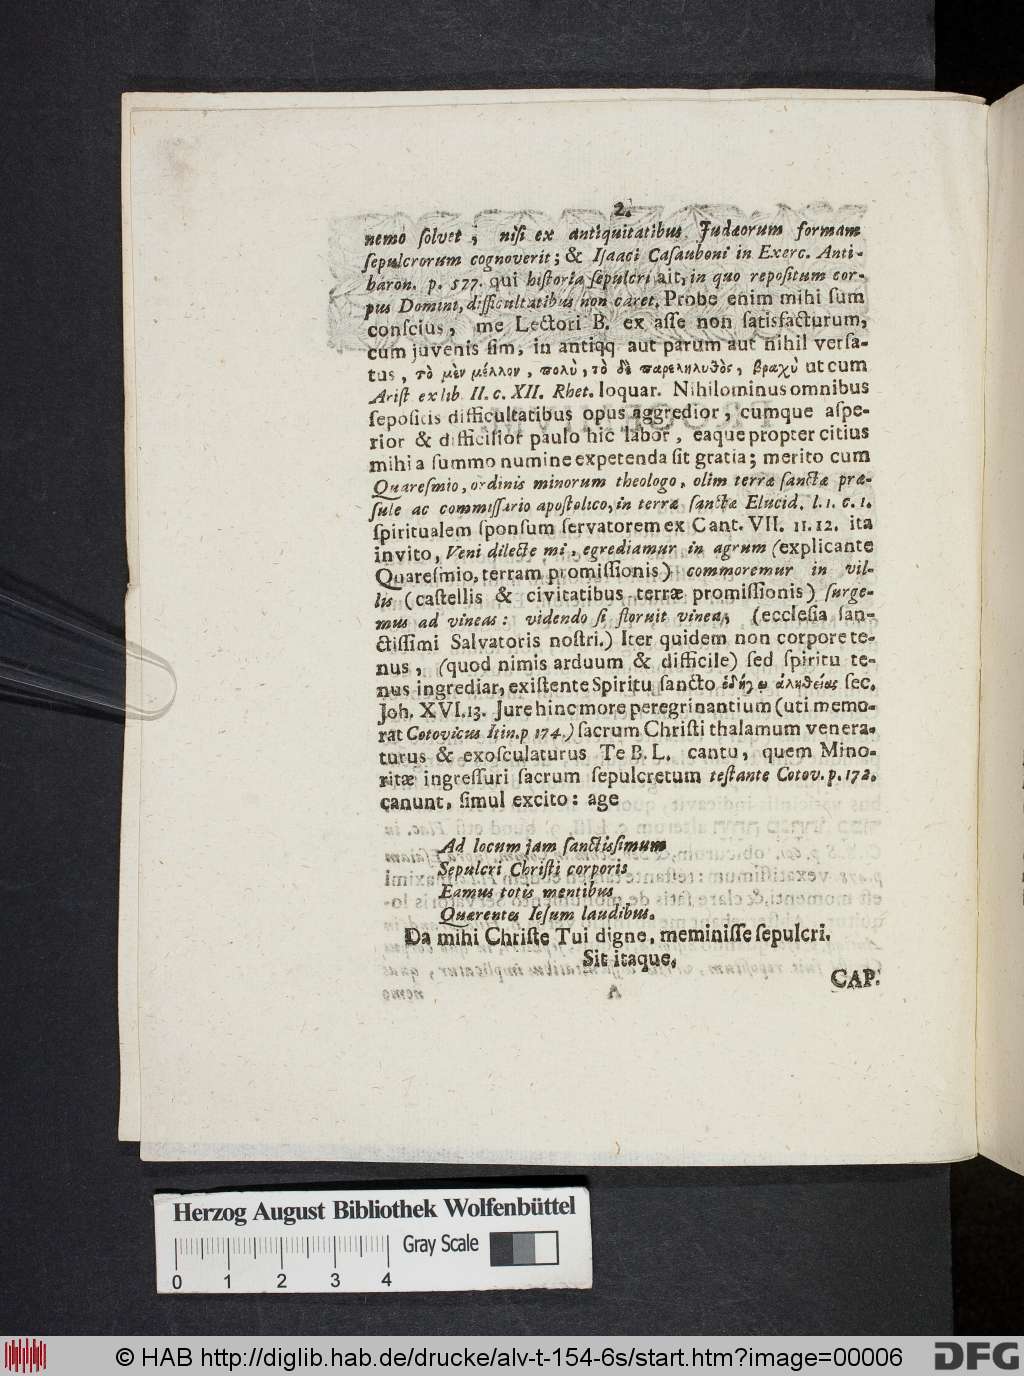 2.
nemo ſolvet ; niſi ex antiquitatibus Judæorum formam
ſepulcrorum cognoverit; & Iſaaci Caſauboni in Exerc. Anti-
baron. p. 577. qui hiſtoria ſepulcri ait, in quo repoſitum cor-
pus Domini, difficultatibus non caret. Probe enim mihi ſum
conſcius, me Lectori B. ex aſſe non ſatisfacturum,
cum juvenis ſim, in antiqq aut parum aut nihil verſa-
tus, τὸ μὲν μέλλον, πολὺ, τὸ δὲ παρεληλυθὸς, βραχὺ ut cum
Ariſt ex lib II. c. XII. Rhet. loquar. Nihilominus omnibus
ſepoſitis difficultatibus opus aggredior, cumque aſpe-
rior & difficilior paulo hic labor, eaque propter citius
mihi a ſummo numine expetenda ſit gratia; merito cum
Quareſmio, ordinis minorum theologo, olim terræ ſanctæ præ-
ſule ac commiſſario apoſtolico, in terræ ſanctæ Elucid. l. 1. c. 1.
ſpiritualem ſponſum ſervatorem ex Cant. VII. 11. 12. ita
invito, Veni dilecte mi, egrediamur in agrum (explicante
Quareſmio, terram promiſſionis) commoremur in vil-
lis (caſtellis & civitatibus terræ promiſſionis) ſurge-
mus ad vineas: videndo ſi floruit vinea, (eccleſia ſan-
ctiſſimi Salvatoris noſtri.) Iter quidem non corpore te-
nus, (quod nimis arduum & difficile) ſed ſpiritu te-
nus ingrediar, exiſtente Spiritu ſancto ὁδηγῷ ἀληθείας ſec.
Joh. XVI. 13. Jure hinc more peregrinantium (uti memo-
rat Cotovicus Itin. p 174.) ſacrum Chriſti thalamum venera-
turus & exoſculaturus Te B. L. cantu, quem Mino-
ritæ ingreſſuri ſacrum ſepulcretum teſtante Cotov. p. 172.
canunt, ſimul excito: age
Ad locum jam ſanctissimum
Sepulcri Chriſti corporis
Eamus totis mentibus
Quærentes Ieſum laudibus.
Da mihi Chriſte Tui digne, meminiſſe ſepulcri.
Sit itaque,
CAP.
Herzog August Bibliothek Wolfenbüttel
Gray Scale
0 1 2 3 4
© HAB http://diglib.hab.de/drucke/alv-t-154-6s/start.htm?image=00006
DFG